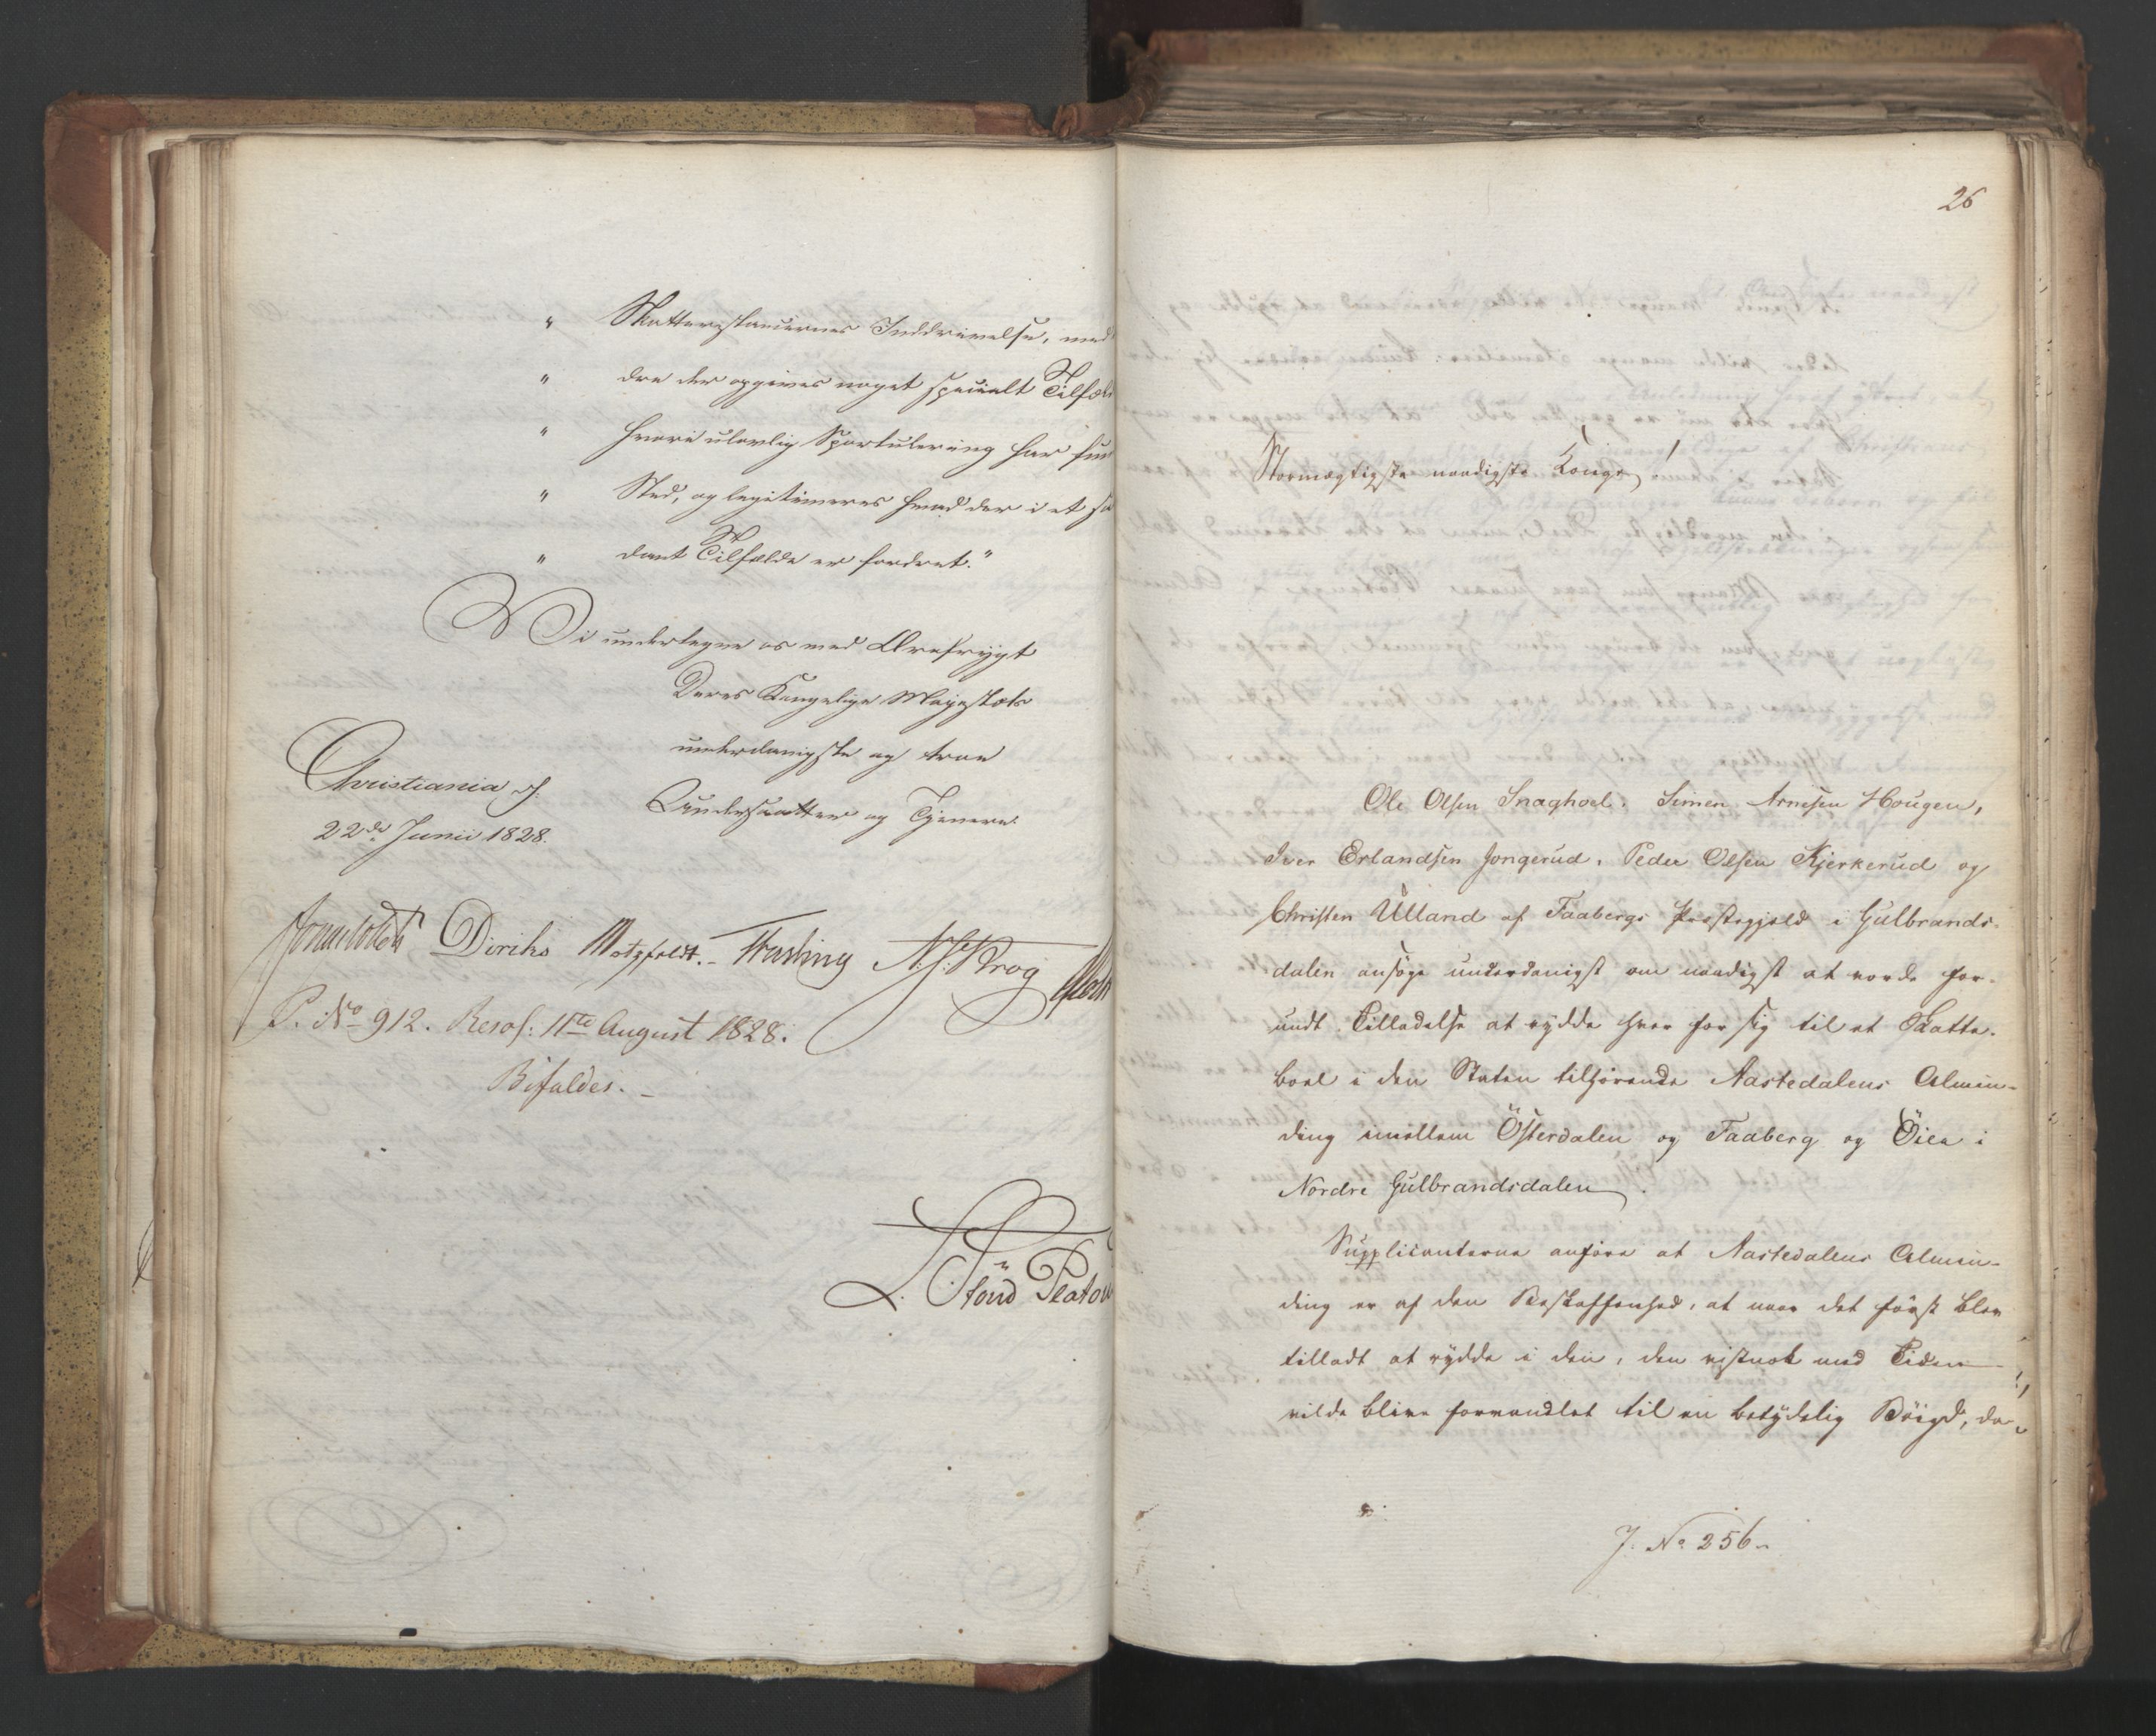 " Skatterestancernes Inddrivelse, med
" dre der opgives noget specielt Tilfæl
" hvori ulovlig Sportulering har fun
" Sted, og legitimeres hvad der i et sa
" dant Tilfælde er fordret."
Vi undertegne os med Ærefrygt
Deres Kongelige Majestæts
underdanigste og troe
Christiania d.
Undersaatter og Tjenere.
22de Junii 1828.
Diriks Motzfeldt. Fasting N. J. Krog
P. No 912. Resol: 11te August 1828.
Bifaldes.
L. Stoud Platou
26
Stormægtigste naadigste Konge!
Ole Olsen Snaghoel, Simen Arnesen Hougen,
Iver Erlandsen Jongerud, Peder Olsen Kjerkerud og
Christen Ulland af Faabergs Præstegjeld i Gulbrands-
dalen ansøge underdanigst om naadigst at vorde for-
undt Tilladelse at rydde hver for sig til et Skatte-
boel i den Staten tilhørende Aastedalens Almin-
ding imellem Österdalen og Faaberg og Öier i
Nordre Gulbrandsdalen.
Supplicanterne anføre at Aastedalens Almin-
ding er af den Beskaffenhed, at naar det først blev
tilladt at rydde i den, den vistnok med Tiden
vilde blive forvandlet til en betydelig Böigd, da
J. No 256.